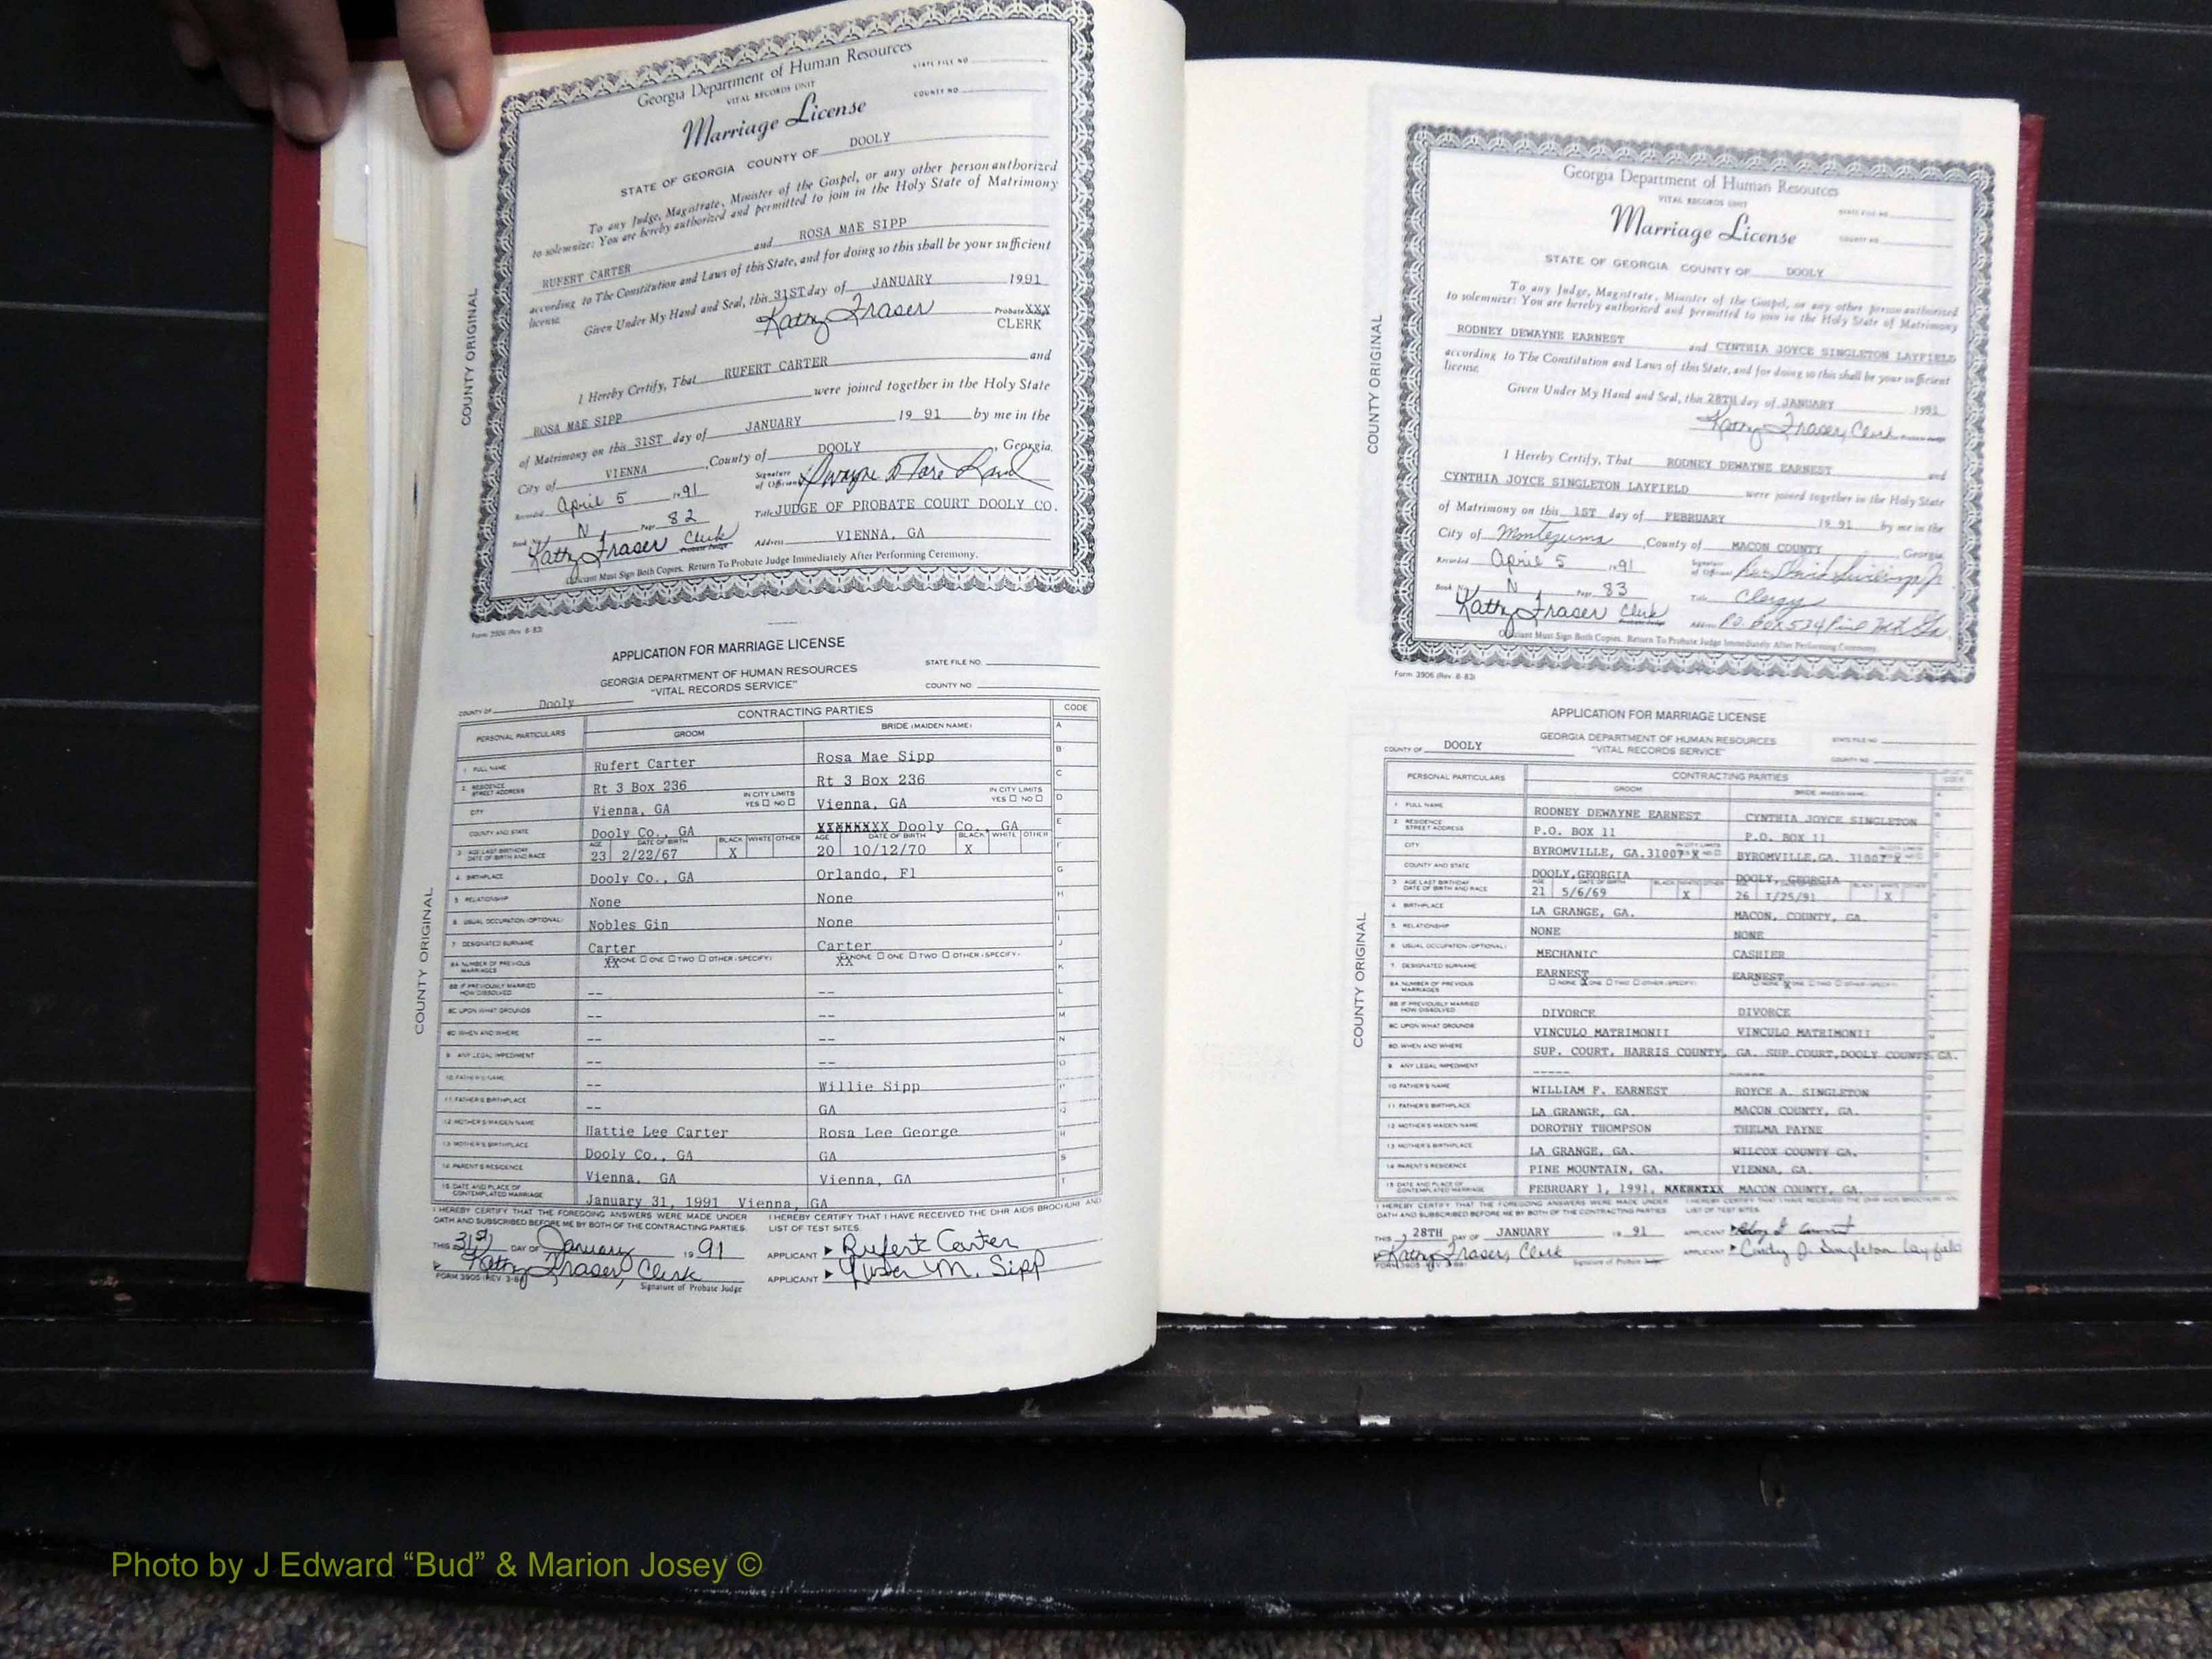 Georgia Department of Human Resources
VITAL RECORDS UNIT
STATE FILE NO.
Marriage License
COUNTY NO.
STATE OF GEORGIA COUNTY OF DOOLY
To any Judge, Magistrate, Minister of the Gospel, or any other person authorized
to solemnize: You are hereby authorized and permitted to join in the Holy State of Matrimony
RUFERT CARTER and ROSA MAE SIPP
according to The Constitution and Laws of this State, and for doing so this shall be your sufficient
license.
Given Under My Hand and Seal, this 31ST day of JANUARY 1991
Kathy Fraser Probate XXX
CLERK
I Hereby Certify, That RUFERT CARTER and
ROSA MAE SIPP were joined together in the Holy State
of Matrimony on this 31ST day of JANUARY 19 91 by me in the
City of VIENNA, County of DOOLY, Georgia.
Recorded April 5 1991 Signature of Officiant
Book No. N Page 82 Title JUDGE OF PROBATE COURT DOOLY CO.
Kathy Fraser Clerk Address VIENNA, GA
Officiant Must Sign Both Copies. Return To Probate Judge Immediately After Performing Ceremony.
Form 3906 (Rev. 8-83)
COUNTY ORIGINAL
APPLICATION FOR MARRIAGE LICENSE
GEORGIA DEPARTMENT OF HUMAN RESOURCES
"VITAL RECORDS SERVICE"
STATE FILE NO.
COUNTY NO.
COUNTY OF Dooly
PERSONAL PARTICULARS CONTRACTING PARTIES CODE
GROOM BRIDE (MAIDEN NAME)
1 FULL NAME Rufert Carter Rosa Mae Sipp
2 RESIDENCE STREET ADDRESS Rt 3 Box 236 Rt 3 Box 236
CITY Vienna, GA IN CITY LIMITS YES NO Vienna, GA IN CITY LIMITS YES NO
COUNTY AND STATE Dooly Co., GA XXXXXXXX Dooly Co., GA
3 AGE LAST BIRTHDAY DATE OF BIRTH AND RACE AGE 23 DATE OF BIRTH 2/22/67 BLACK X WHITE OTHER AGE 20 DATE OF BIRTH 10/12/70 BLACK X WHITE OTHER
4 BIRTHPLACE Dooly Co., GA Orlando, Fl
5 RELATIONSHIP None None
6 USUAL OCCUPATION (OPTIONAL) Nobles Gin None
7 DESIGNATED SURNAME Carter Carter
8A NUMBER OF PREVIOUS MARRIAGES XX NONE ONE TWO OTHER (SPECIFY) XX NONE ONE TWO OTHER (SPECIFY)
8B IF PREVIOUSLY MARRIED HOW DISSOLVED -- --
8C UPON WHAT GROUNDS -- --
8D WHEN AND WHERE -- --
9 ANY LEGAL IMPEDIMENT -- --
10 FATHER'S NAME -- Willie Sipp
11 FATHER'S BIRTHPLACE -- GA
12 MOTHER'S MAIDEN NAME Hattie Lee Carter Rosa Lee George
13 MOTHER'S BIRTHPLACE Dooly Co., GA GA
14 PARENT'S RESIDENCE Vienna, GA Vienna, GA
15 DATE AND PLACE OF CONTEMPLATED MARRIAGE January 31, 1991 Vienna, GA
I HEREBY CERTIFY THAT THE FOREGOING ANSWERS WERE MADE UNDER OATH AND SUBSCRIBED BEFORE ME BY BOTH OF THE CONTRACTING PARTIES.
I HEREBY CERTIFY THAT I HAVE RECEIVED THE DHR AIDS BROCHURE AND LIST OF TEST SITES.
THIS 31st DAY OF January 1991 APPLICANT Rufert Carter
Kathy Fraser, Clerk APPLICANT M. Sipp
FORM 3905 (REV. 3-88) Signature of Probate Judge
COUNTY ORIGINAL
Georgia Department of Human Resources
VITAL RECORDS UNIT
STATE FILE NO.
Marriage License
COUNTY NO.
STATE OF GEORGIA COUNTY OF DOOLY
To any Judge, Magistrate, Minister of the Gospel, or any other person authorized
to solemnize: You are hereby authorized and permitted to join in the Holy State of Matrimony
RODNEY DEWAYNE EARNEST and CYNTHIA JOYCE SINGLETON LAYFIELD
according to The Constitution and Laws of this State, and for doing so this shall be your sufficient
license.
Given Under My Hand and Seal, this 28TH day of JANUARY 1991
Kathy Fraser, Clerk
I Hereby Certify, That RODNEY DEWAYNE EARNEST and
CYNTHIA JOYCE SINGLETON LAYFIELD were joined together in the Holy State
of Matrimony on this 1ST day of FEBRUARY 19 91 by me in the
City of Montezuma, County of MACON COUNTY, Georgia
Recorded April 5 1991 Signature of Officiant Rev. David
Book No. N Page 83 Title Clergy
Kathy Fraser Clerk Address P.O. Box 534 Pine Mtn Ga.
Officiant Must Sign Both Copies. Return To Probate Judge Immediately After Performing Ceremony.
Form 3906 (Rev. 8-83)
COUNTY ORIGINAL
APPLICATION FOR MARRIAGE LICENSE
GEORGIA DEPARTMENT OF HUMAN RESOURCES
"VITAL RECORDS SERVICE"
STATE FILE NO.
COUNTY NO.
COUNTY OF DOOLY
PERSONAL PARTICULARS CONTRACTING PARTIES CODE
GROOM BRIDE (MAIDEN NAME)
1 FULL NAME RODNEY DEWAYNE EARNEST CYNTHIA JOYCE SINGLETON
2 RESIDENCE STREET ADDRESS P.O. BOX 11 P.O. BOX 11
CITY BYROMVILLE, GA.31007 X BYROMVILLE,GA. 31007 X
COUNTY AND STATE DOOLY,GEORGIA DOOLY, GEORGIA
3 AGE LAST BIRTHDAY DATE OF BIRTH AND RACE 21 5/6/69 X 26 1/25/91 X
4 BIRTHPLACE LA GRANGE, GA. MACON, COUNTY, GA.
5 RELATIONSHIP NONE NONE
6 USUAL OCCUPATION (OPTIONAL) MECHANIC CASHIER
7 DESIGNATED SURNAME EARNEST EARNEST
8A NUMBER OF PREVIOUS MARRIAGES NONE X ONE TWO OTHER (SPECIFY) NONE X ONE TWO OTHER (SPECIFY)
8B IF PREVIOUSLY MARRIED HOW DISSOLVED DIVORCE DIVORCE
8C UPON WHAT GROUNDS VINCULO MATRIMONII VINCULO MATRIMONII
8D WHEN AND WHERE SUP. COURT, HARRIS COUNTY, GA. SUP.COURT,DOOLY COUNTY, GA.
9 ANY LEGAL IMPEDIMENT ----- -----
10 FATHER'S NAME WILLIAM F. EARNEST ROYCE A. SINGLETON
11 FATHER'S BIRTHPLACE LA GRANGE, GA. MACON COUNTY, GA.
12 MOTHER'S MAIDEN NAME DOROTHY THOMPSON THELMA PAYNE
13 MOTHER'S BIRTHPLACE LA GRANGE, GA. WILCOX COUNTY GA.
14 PARENT'S RESIDENCE PINE MOUNTAIN, GA. VIENNA, GA.
15 DATE AND PLACE OF CONTEMPLATED MARRIAGE FEBRUARY 1, 1991, MACON COUNTY, GA.
I HEREBY CERTIFY THAT THE FOREGOING ANSWERS WERE MADE UNDER OATH AND SUBSCRIBED BEFORE ME BY BOTH OF THE CONTRACTING PARTIES
I HEREBY CERTIFY THAT I HAVE RECEIVED THE DHR AIDS BROCHURE AND LIST OF TEST SITES.
THIS 28TH DAY OF JANUARY 19 91 APPLICANT
Kathy Fraser, Clerk APPLICANT Cindy J. Singleton Layfield
FORM 3905 (REV. 3-88) Signature of Probate Judge
COUNTY ORIGINAL
Photo by J Edward “Bud” & Marion Josey ©